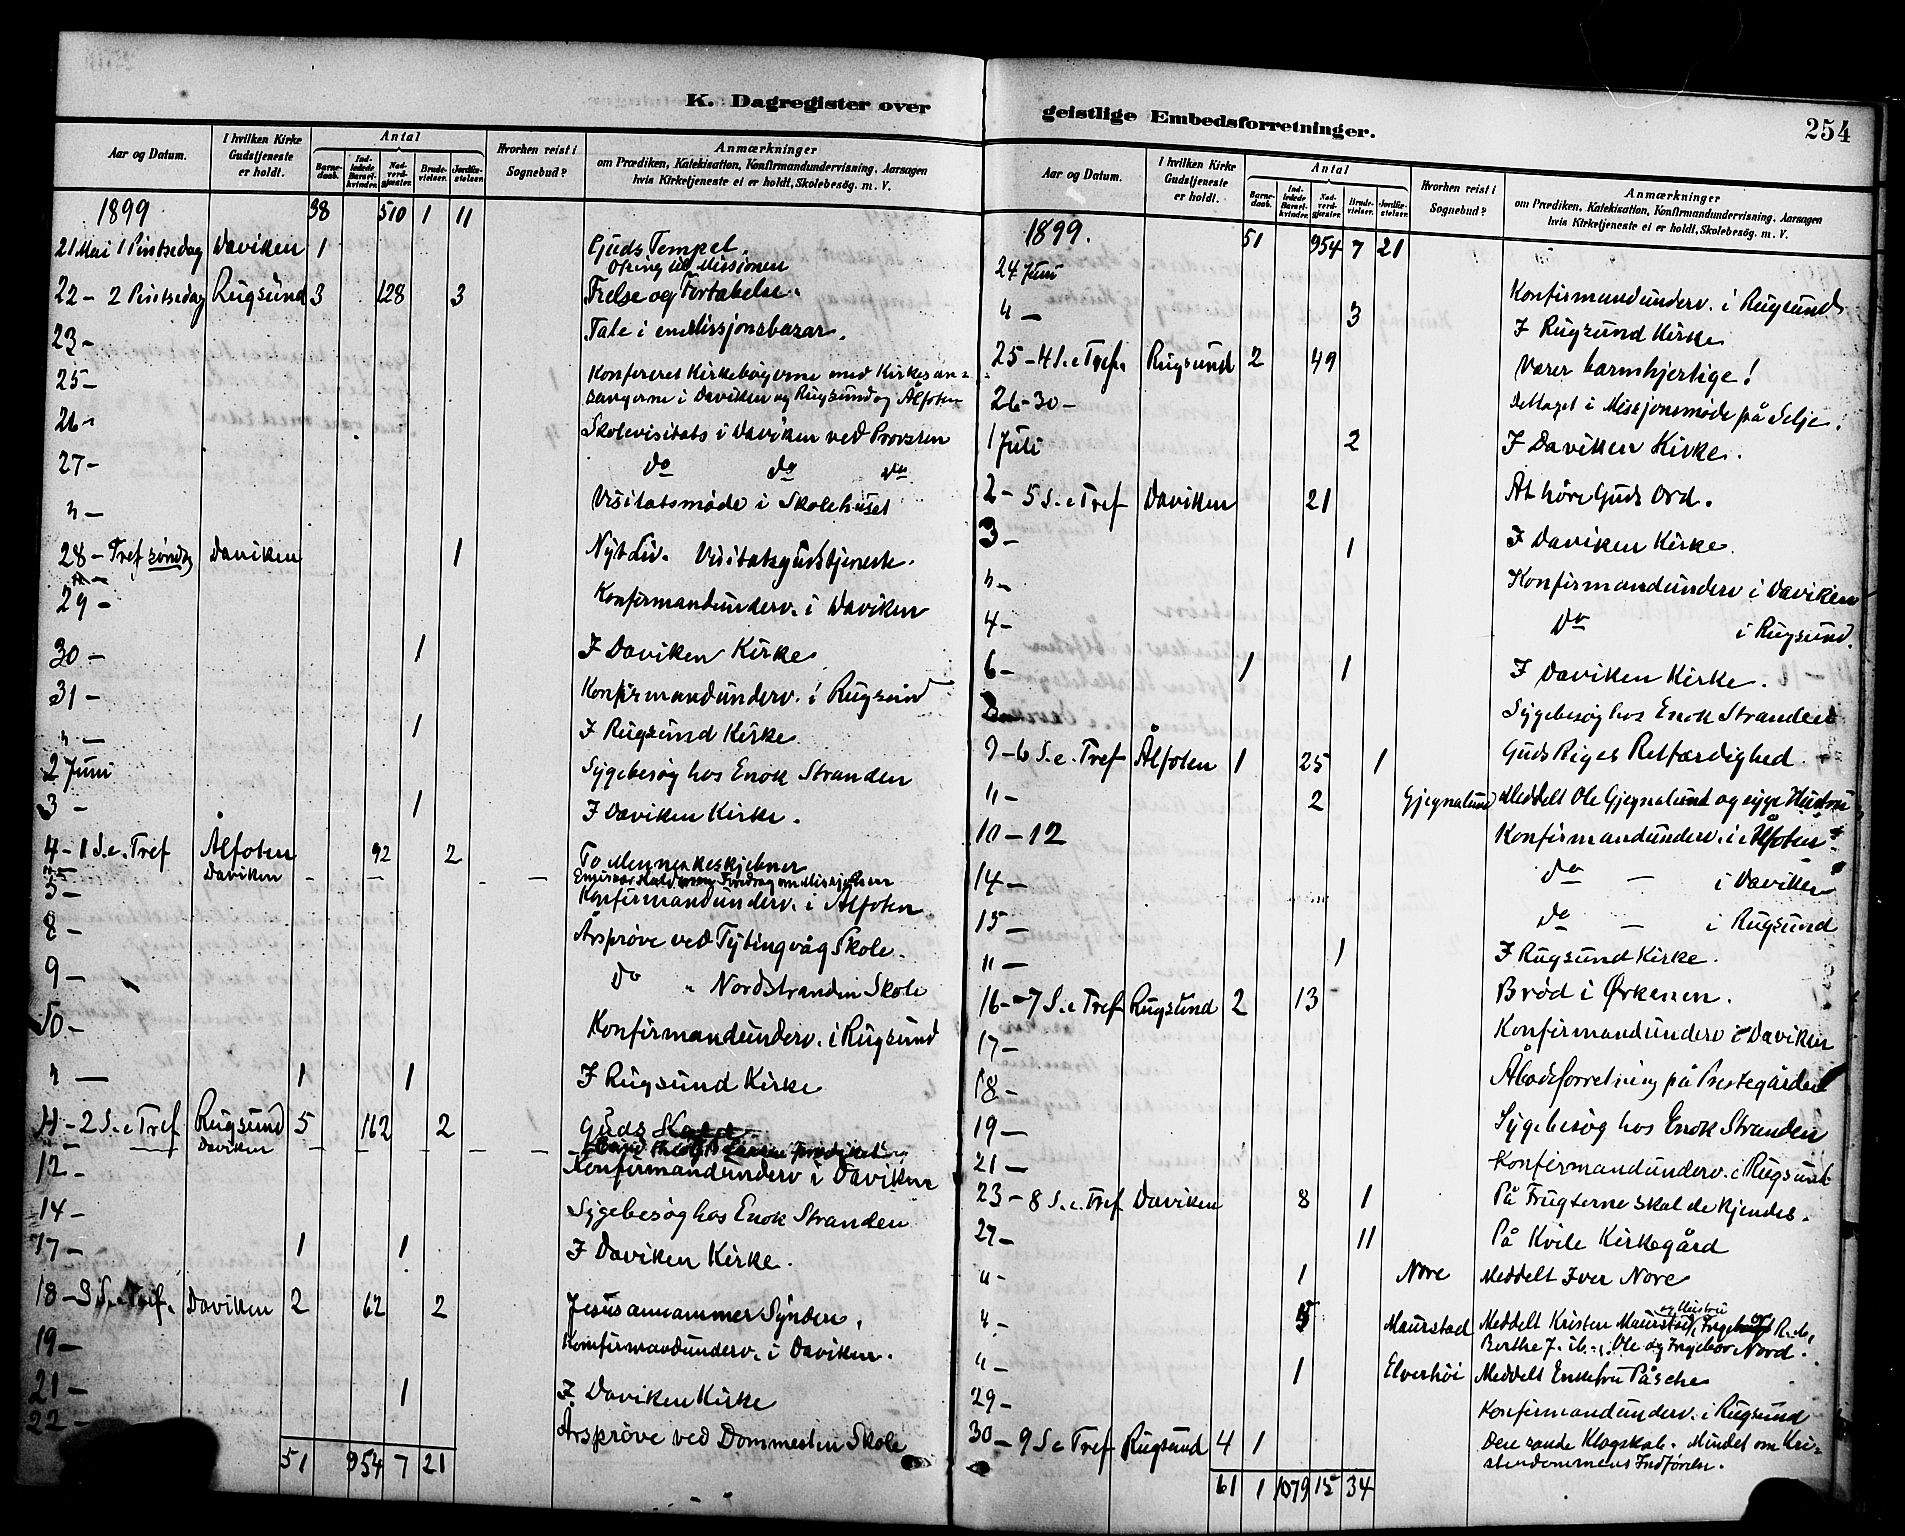 K. Dagregister over
Aar og Datum. I hvilken Kirke Gudstjeneste er holdt. Antal Barnedaab. Indledede Barselkvinder. Nadverdgjæster. Brudevielser. Jordfæstelser. Hvorhen reist i Sognebud? Anmærkninger om Prædiken, Katekisation, Konfirmandundervisning, Aarsagen hvis Kirketjeneste ei er holdt, Skolebesøg. m. V.
1899 38 510 1 11
21 Mai 1 Pintsedag Daviken 1 Guds Tempel.
Ofring til Missionen
22 - 2 Pintsedag Rugsund 3 128 3 Frelse og Fortabelse.
23 - Tale i en Missjonsbazar.
25 - Konfereret Kirkebøgerne med Kirkesan-
sangerne i Daviken og Rugsund og Ålfoten
26 - Skolevisitats i Daviken ved Provsten
27 - do do do
" - Visitatsmøde i Skolehuset
28 - Tref søndag Daviken 1 Nyt Liv. Visitatsgudstjeneste.
29 - Konfirmandunderv. i Daviken
30 - 1 I Daviken Kirke
31 - Konfirmandunderv. i Rugsund
" - 1 I Rugsund Kirke
2 Juni Sygebesøg hos Enok Stranden
3 - 1 I Daviken Kirke.
4 - 1 S. e. Tref Ålfoten 92 2 To Menneskeskjebner
Daviken - - - - Foredrag om Missjonen
5 - Konfirmandunderv. i Ålfoten
8 - Årsprøve ved Tytingvåg Skole.
9 - Do " Nordstranden Skole
10 - Konfirmandunderv. i Rugsund
" - 1 1 I Rugsund Kirke
11 - 2 S. e Tref Rugsund 5 162 2 Guds
" - Daviken - - - - - -
12 - Konfirmandunderv i Daviken
14 - Sygebesøg hos Enok Stranden
17 - 1 1 I Daviken Kirke.
18 - 3 S. e Tref. Daviken 2 62 2 Jesus annammer Syndere.
19 - Konfirmandunderv. i Daviken.
21 - 1 I Daviken Kirke
22 - Årsprøve ved Dommesten Skole
51 954 7 21
geistlige Embedsforretninger. 254
Aar og Datum. I hvilken Kirke Gudstjeneste er holdt. Antal Barnedaab. Indledede Barselkvinder. Nadverdgjæster. Brudevielser. Jordfæstelser. Hvorhen reist i Sognebud? Anmærkninger om Prædiken, Katekisation, Konfirmandundervisning, Aarsagen hvis Kirketjeneste ei er holdt, Skolebesøg. m. V.
1899. 51 954 7 21
24 Juni Konfirmandunderv. i Rugsund
" - 3 I Rugsund Kirke
25 - 4 S. e Tref. Rugsund 2 49 Værer barmhjertige!
26-30 - Deltaget i Missjonsmøde på Selje.
1 Juli 2 I Daviken Kirke.
2 - 5 S. e Tref Daviken 21 At høre Guds Ord.
3 - 1 I Daviken Kirke.
" - Konfirmandunderv i Daviken
4 - Do i Rugsund.
6 - 1 1 I Daviken Kirke.
8 - Sygebesøg hos Enok Stranden
9 - 6 S. e. Tref Ålfoten 1 25 1 Guds Riges Retfærdighed
" - 2 Gjegnalund Meddelt Ole Gjegnalund og syge Hustru
10 - 12 Konfirmandunderv. i Ålfoten
14 - Do - i Daviken
15 - Do - i Rugsund
" - 1 I Rugsund Kirke.
16 - 7 S. e Tref Rugsund 2 13 Brød i Ørkenen.
17 - Konfirmandunderv i Daviken
18 - Åbodsforretning på Prestegården
19 - Sygebesøg hos Enok Stranden
21 - Konfirmandunderv. i Rugsund
23 - 8 S. e. Tref Daviken 8 1 På Frugterne skal de kjendes.
27 - 11 På Kvile Kirkegård
" - 1 Nore Meddelt Iver Nore
" - 5 Maurstad Meddelt Kristen Maurstad og Hustru
Berthe J. ib. Ole og Ingebor Nord.
" - 1 Elverhöi Meddelt Enkefru Påsche
29 - Konfirmandunderv. i Rugsund
30 - 9 S e Tref Rugsund 4 1 Den sande Klogskab. Mindet om Kri-
stendommens Indførelse.
61 1 1079 15 34